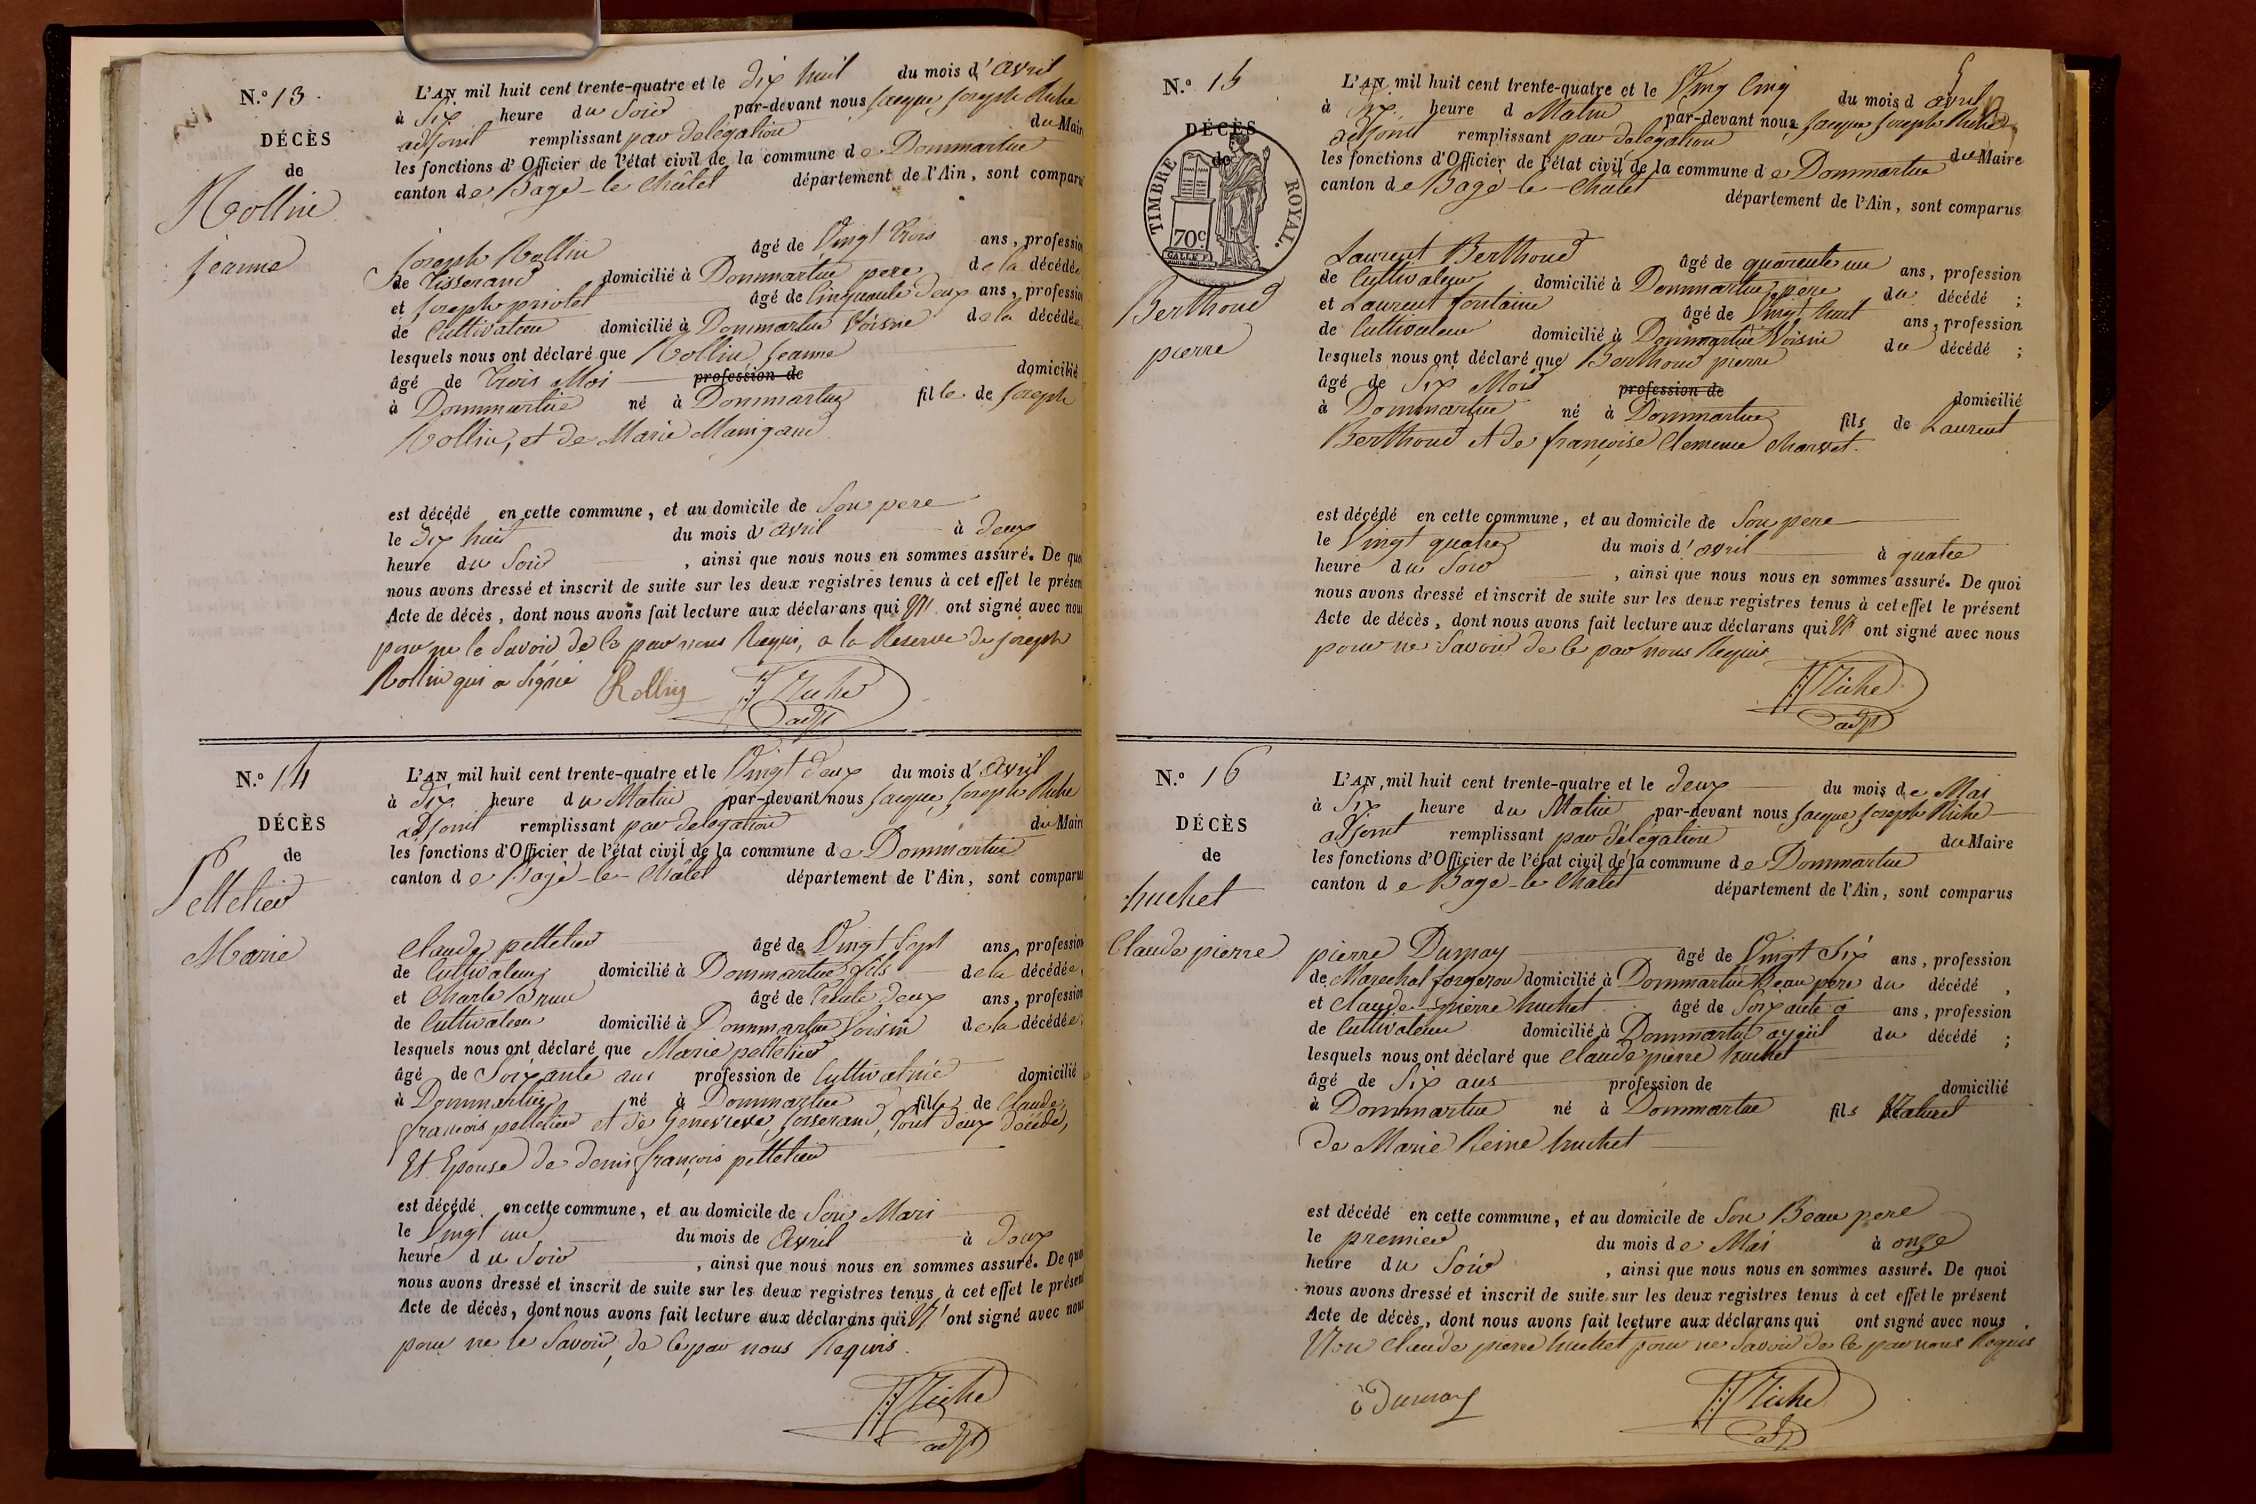 N.º 13.
DÉCÈS
de
Rollin
jeanne
L'AN mil huit cent trente-quatre et le dix huit du mois d'avril
à Six heure du Soir par-devant nous jacque joseph Riche
adjoint remplissant par delégation du Maire
les fonctions d'Officier de l'état civil de la commune de Dommartin
canton de Bagé-le-Châtel département de l'Ain, sont comparus
joseph Rollin âgé de Vingt trois ans, profession
de tisserand domicilié à Dommartin pere de la décédée
et joseph priolet âgé de Cinquante deux ans, profession
de Cultivateur domicilié à Dommartin Voisin de la décédée
lesquels nous ont déclaré que Rollin jeanne
âgé de trois Moi profession de domicilié
à Dommartin né à Dommartin fille de joseph
Rollin, et de Marie Maingaud
est décédé en cette commune, et au domicile de Son pere
le dix huit du mois d'avril à deux
heure du Soir, ainsi que nous nous en sommes assuré. De quoi
nous avons dressé et inscrit de suite sur les deux registres tenus à cet effet le présent
Acte de décès, dont nous avons fait lecture aux déclarans qui N' ont signé avec nous
pour ne le Savoir de Ce par nous Requis, a la Reserve de joseph
Rollin qui a Signé Rollin Riche
adjt
N.º 14
DÉCÈS
de
Pelletier
Marie
L'AN mil huit cent trente-quatre et le Vingt deux du mois d'avril
à dix heure du Matin par-devant nous jacque joseph Riche
adjoint remplissant par delégation du Maire
les fonctions d'Officier de l'état civil de la commune de Dommartin
canton de Bagé-le-Châtel département de l'Ain, sont comparus
Claude pelletier âgé de Vingt Sept ans, profession
de Cultivateur domicilié à Dommartin fils de la décédée,
et Charle Brun âgé de trente deux ans, profession
de Cultivateur domicilié à Dommartin Voisin de la décédée;
lesquels nous ont déclaré que Marie pelletier
âgé de Soixante ans profession de Cultivatrice domicilié
à Dommartin né à Dommartin fille de Claude
francois pelletier et de Genevieve, josserand, tout deux décédé,
Et Epouse de denis françois pelletier
est décédé en cette commune, et au domicile de Son Mari
le Vingt un du mois de avril à deux
heure du Soir, ainsi que nous nous en sommes assuré. De quoi
nous avons dressé et inscrit de suite sur les deux registres tenus à cet effet le présent
Acte de décès, dont nous avons fait lecture aux déclarans qui N' ont signé avec nous
pour ne le Savoir, de Ce par nous Requis.
Riche
adjt
N.º 15
DÉCÈS
de
TIMBRE ROYAL.
70 c.
Berthoud
pierre
5
L'AN mil huit cent trente-quatre et le Ving Cinq du mois d avril
à Six heure d Matin par-devant nous jacque joseph Riche
adjoint remplissant par delégation du Maire
les fonctions d'Officier de l'état civil de la commune de Dommartin
canton de Bagé-le-Chatel département de l'Ain, sont comparus
Laurent Berthoud âgé de quarente un ans, profession
de Cultivateur domicilié à Dommartin pere du décédé;
et Laurent fontaine âgé de Vingt huit ans, profession
de Cultivateur domicilié à Dommartin Voisin du décédé;
lesquels nous ont déclaré que Berthoud pierre
âgé de Six Mois profession de domicilié
à Dommartin né à Dommartin fils de Laurent
Berthoud et de françoise Clemence Charvet.
est décédé en cette commune, et au domicile de Son pere
le Vingt quatre du mois d'avril à quatre
heure du Soir, ainsi que nous nous en sommes assuré. De quoi
nous avons dressé et inscrit de suite sur les deux registres tenus à cet effet le présent
Acte de décès, dont nous avons fait lecture aux déclarans qui N' ont signé avec nous
pour ne Savoir de Ce par nous Requis
Riche
adjt
N.º 16
DÉCÈS
de
huchet
Claude pierre
L'AN mil huit cent trente-quatre et le deux du mois de Mai
à Six heure du Matin par-devant nous jacque joseph Riche
adjoint remplissant par délégation du Maire
les fonctions d'Officier de l'état civil de la commune de Dommartin
canton de Bagé-le Chatel département de l'Ain, sont comparus
pierre Durnay âgé de Vingt Six ans, profession
de Marechal forgeron domicilié à Dommartin Beau pere du décédé,
et Claude-pierre huchet âgé de Soixante ans, profession
de Cultivateur domicilié à Dommartin ayeül du décédé;
lesquels nous ont déclaré que Claude pierre huchet
âgé de Six ans profession de domicilié
à Dommartin né à Dommartin fils Naturel
de Marie Reine huchet
est décédé en cette commune, et au domicile de Son Beau pere
le premier du mois de Mai à onze
heure du Soir, ainsi que nous nous en sommes assuré. De quoi
nous avons dressé et inscrit de suite sur les deux registres tenus à cet effet le présent
Acte de décès, dont nous avons fait lecture aux déclarans qui ont signé avec nous
Non Claude pierre huchet pour ne Savoir de Ce par nous Requis
Durnay Riche
adjt